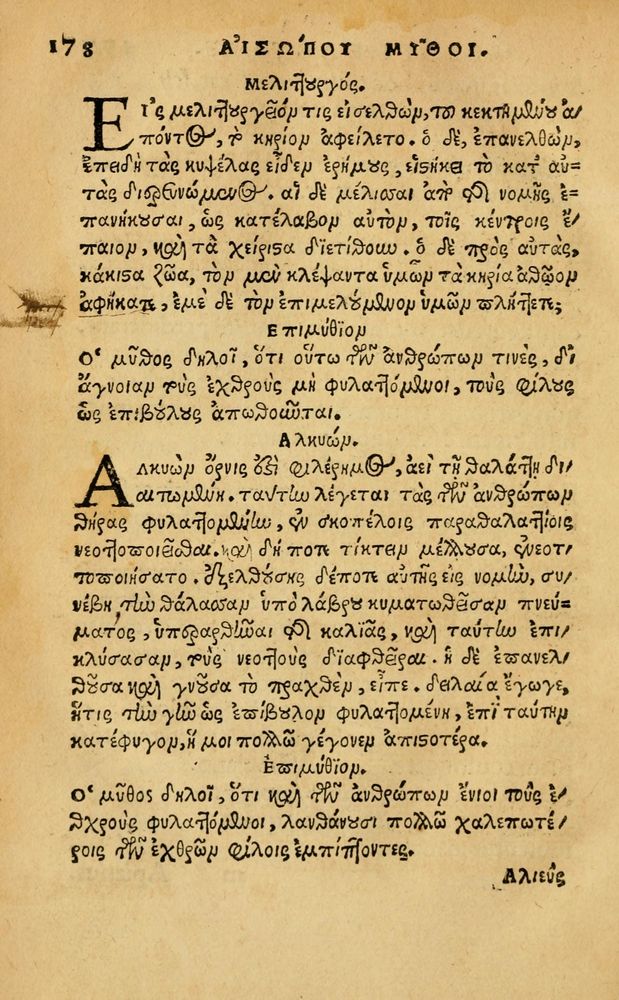 178 ΑΙ᾿ΣΩ´ΠΟΥ ΜΥ͂ΘΟΙ.
Μελιττουργός.
ΕΙ᾿ς μελιττουργεῖόν τις εἰσελθὼν, τοῦ κεκτημένου ἀ-
πόντος, τὸ κηρίον ἀφείλετο. ὁ δὲ, ἐπανελθὼν,
ἐπειδὴ τὰς κυψέλας εἶδεν ἐρήμους, εἱστήκει τὸ κατ᾿ αὐ-
τὰς διερευνώμενος. αἱ δὲ μέλισσαι ἀπὸ τῆς νομῆς ἐ-
πανήκουσαι, ὡς κατέλαβον αὐτὸν, τοῖς κέντροις ἔ-
παιον, καὶ τὰ χείριστα διετίθουν. ὁ δὲ πρὸς αὐτὰς,
κάκιστα ζῶα, τὸν μὲν κλέψαντα ὑμῶν τὰ κηρία ἀθῶον
ἀφήκατε, ἐμὲ δὲ τὸν ἐπιμελούμενον ὑμῶν πλήττετε;
Επιμύθιον
Ο῾ μῦθος δηλοῖ, ὅτι οὕτω τῶν ἀνθρώπων τινὲς, δι᾿
ἄγνοιαν τοὺς ἐχθροὺς μὴ φυλαττόμενοι, τοὺς φίλους
ὡς ἐπιβούλους ἀπωθοῦνται.
Αλκυών.
ΑΛκυὼν ὄρνις ἐστὶ φιλέρημος, ἀεὶ τῇ θαλάττῃ δι-
αιτωμένη. ταύτην λέγεται τὰς τῶν ἀνθρώπων
θήρας φυλαττομένην, ἐν σκοπέλοις παραθαλαττίοις
νεοττοποιεῖσθαι. καὶ δή ποτε τίκτειν μέλλουσα, ἐνεοτ-
τοποιήσατο. ἐξελθούσης δέποτε αὐτῆς εἰς νομὴν, συ-
νέβη τὴν θάλασσαν ὑπὸ λάβρου κυματωθεῖσαν πνεύ-
ματος, ὑπεραρθῆναι τῆς καλιᾶς, καὶ ταύτην ἐπι-
κλύσασαν, τοὺς νεοττοὺς διαφθεῖραι. ἡ δὲ ἐπανελ-
θοῦσα καὶ γνοῦσα τὸ πραχθὲν, εἶπε. δειλαία ἔγωγε,
ἥτις τὴν γῆν ὡς ἐπίβουλον φυλαττομένη, ἐπὶ ταύτην
κατέφυγον, ἥ μοι πολλῷ γέγονεν ἀπιστοτέρα.
Επιμύθιον.
Ο῾ μῦθος δηλοῖ, ὅτι καὶ τῶν ἀνθρώπων ἔνιοι τοὺς ἐ-
χθροὺς φυλαττόμενοι, λανθάνουσι πολλῷ χαλεπωτέ-
ροις τῶν ἐχθρῶν φίλοις ἐμπίπτοντες.
Αλιεὺς